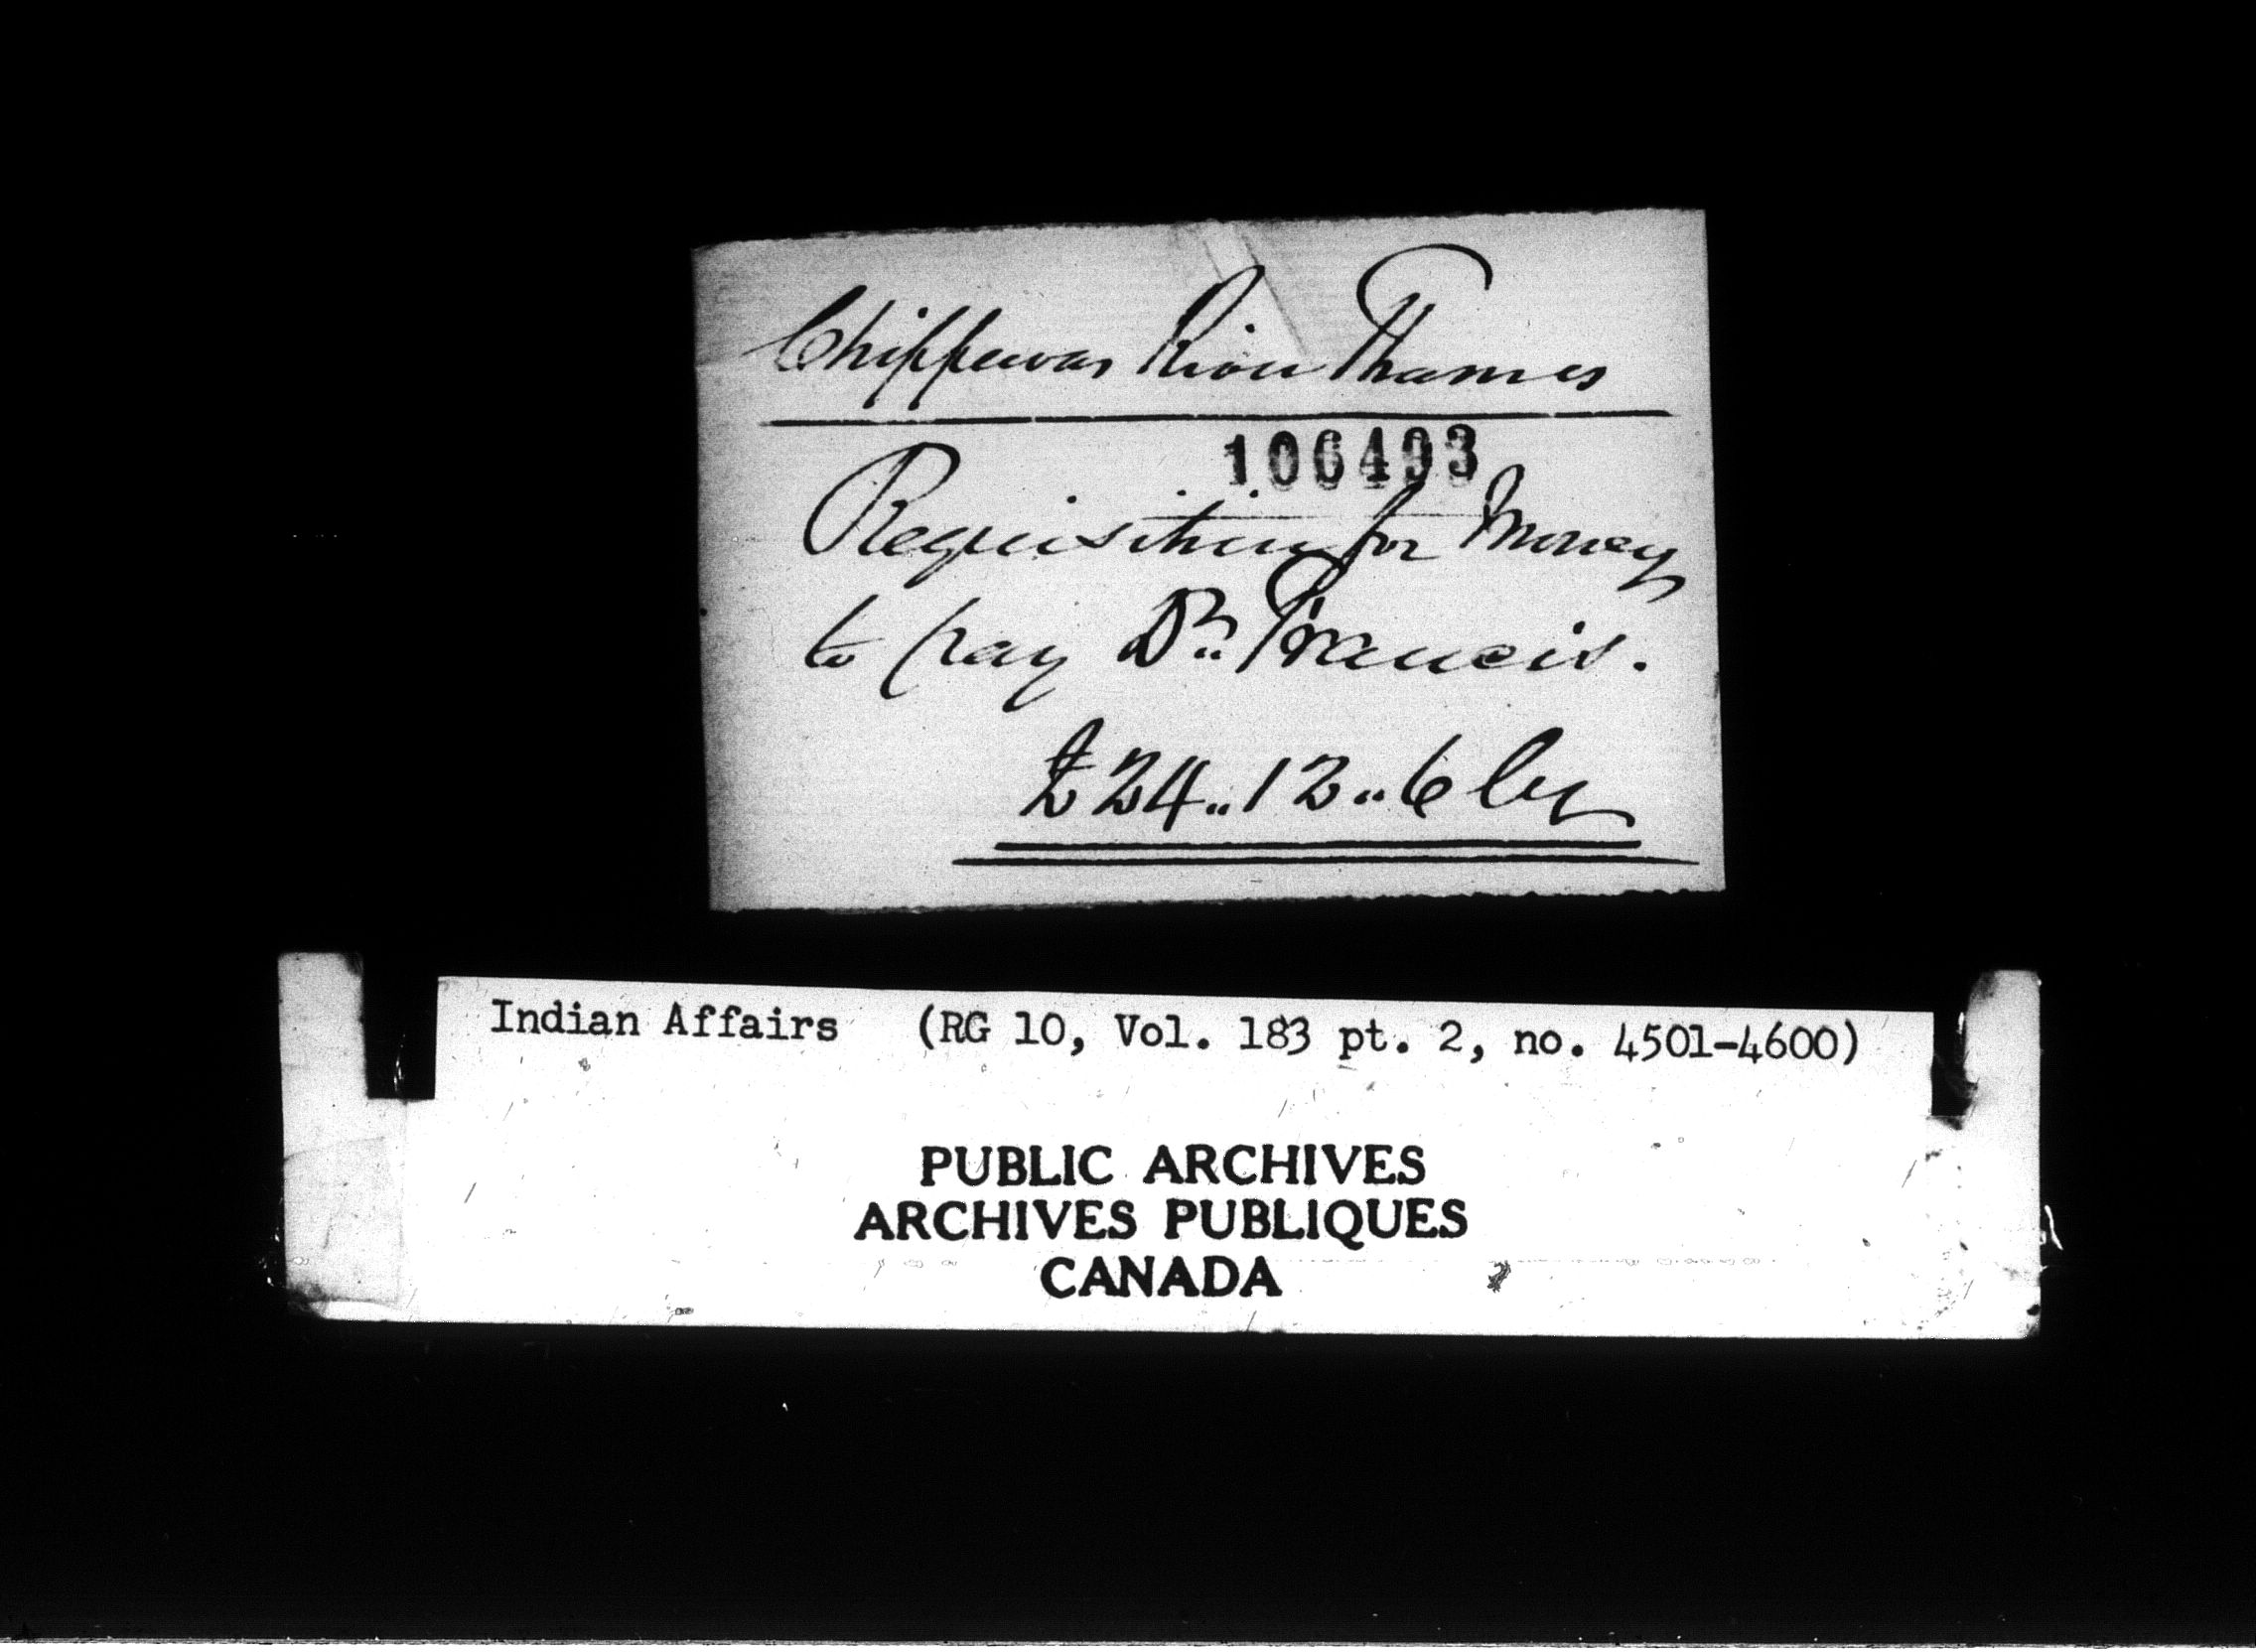 Chippewas River Thames
106493
Requisition for Money
to pay Dr. Francis.
£24..12..6 Cy
Indian Affairs (RG 10, Vol. 183 pt. 2, no. 4501-4600)
PUBLIC ARCHIVES
ARCHIVES PUBLIQUES
CANADA